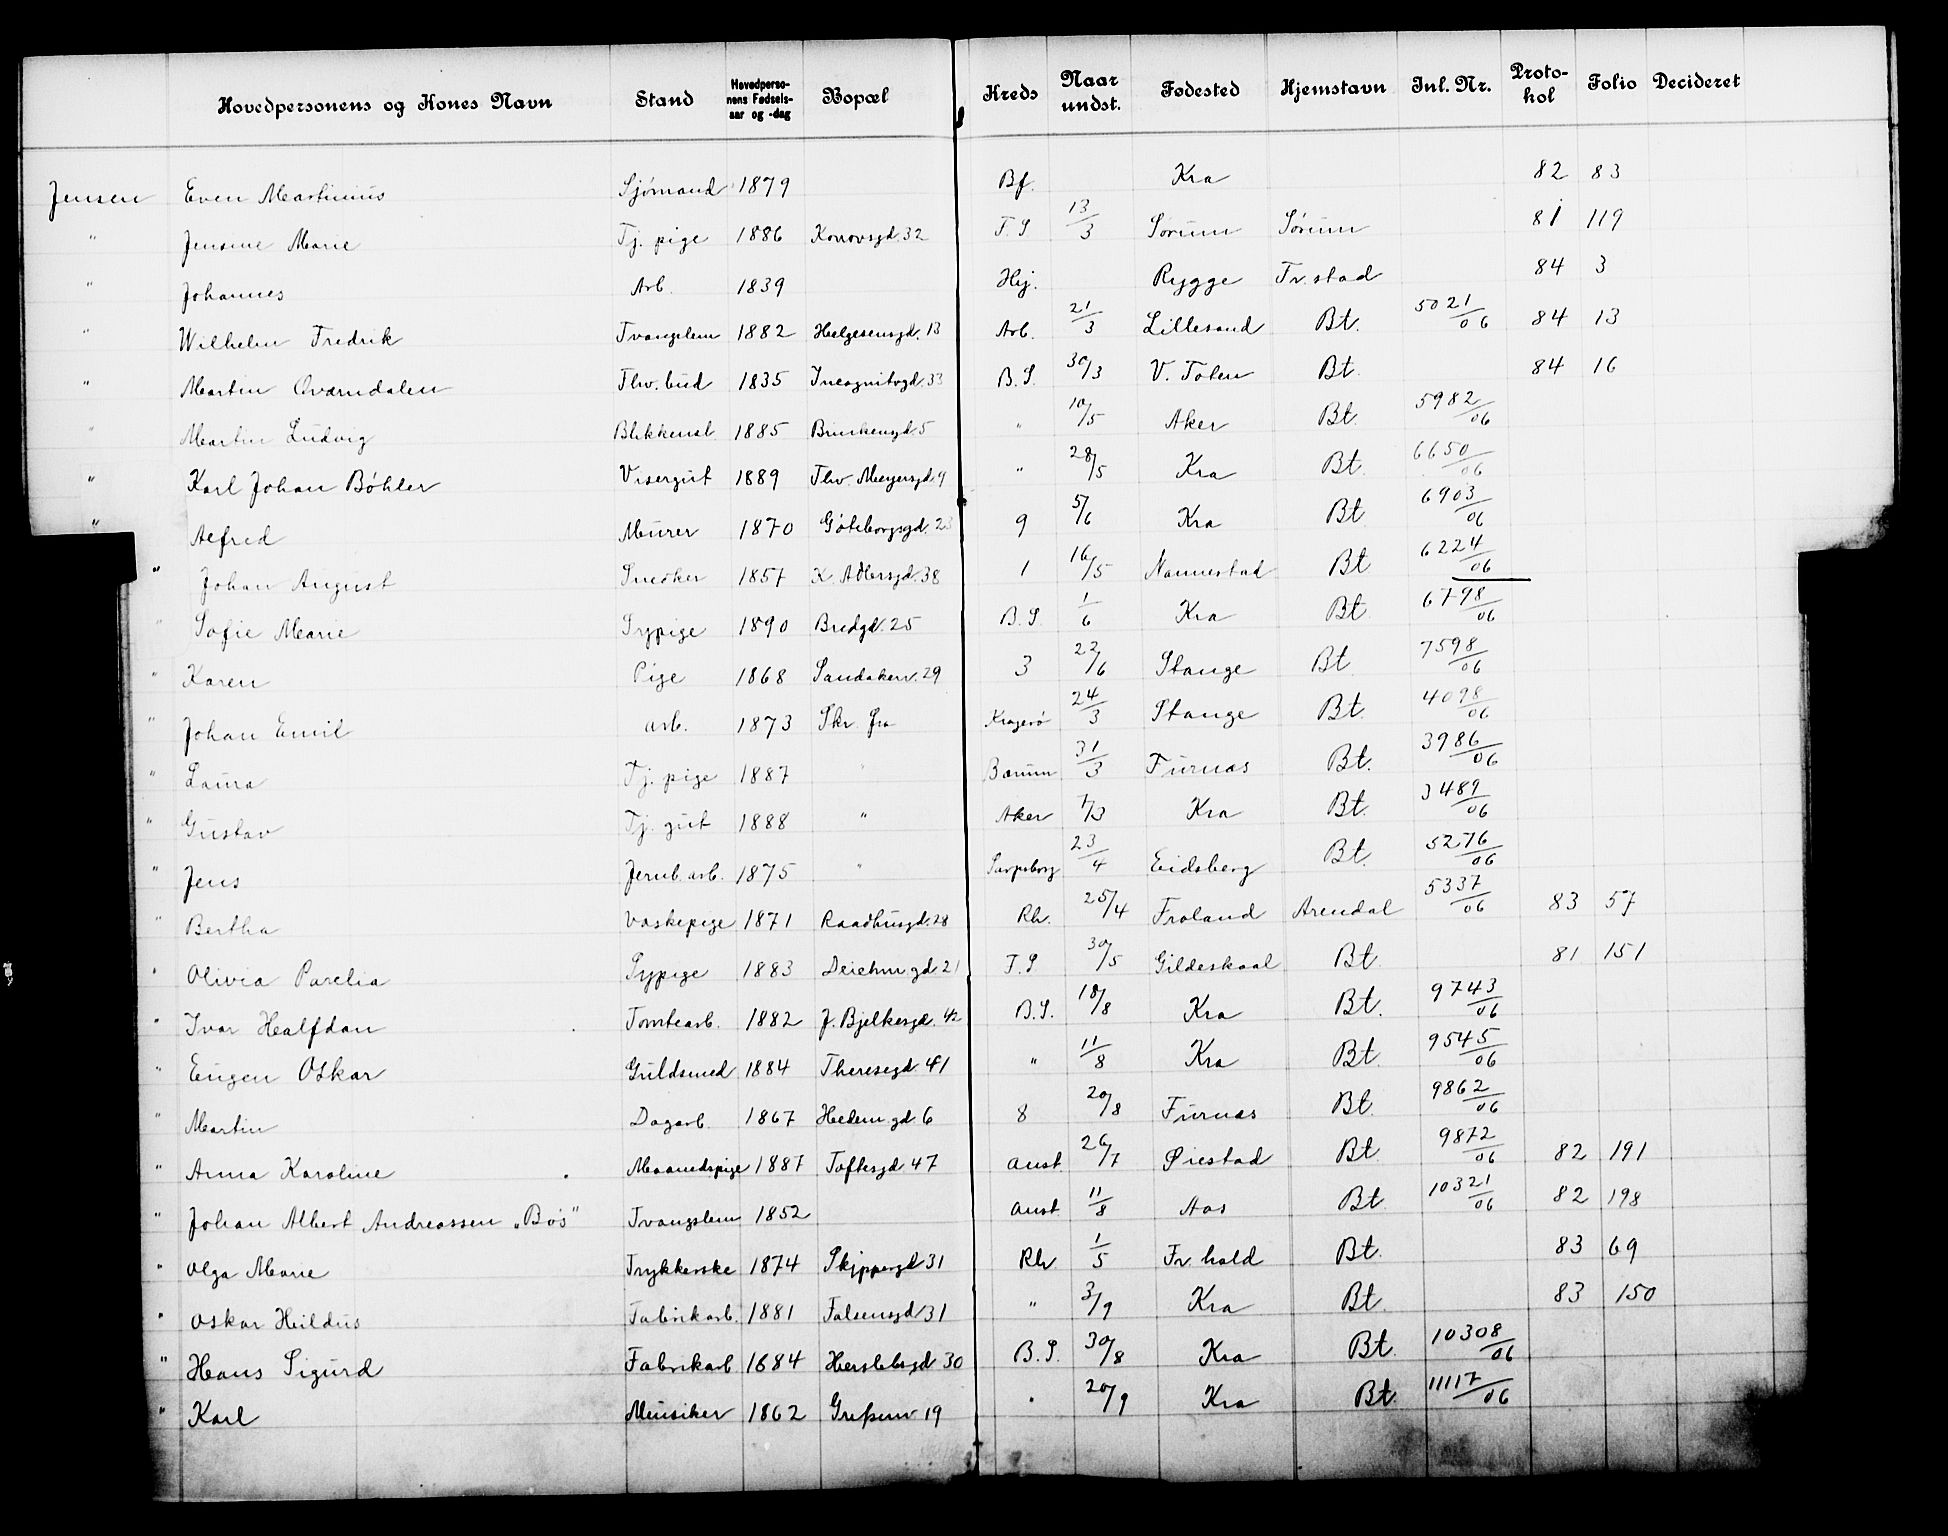 Hovedpersonens og Kones Navn Stand Hovedperso-nens Fødsels-aar og -dag Bopæl Kreds Naar undst. Fødested Hjemstavn Jnl. Nr. Proto-kol Folio Decideret
Jensen Even Martinius Sjømand 1879 Bf. Kra 82 83
" Jensine Marie Tj. pige 1886 Konowsgd. 32 F. S 13/3 Sørum Sørum 81 119
" Johannes Arb. 1839 Hj. Rygge Fr. stad 84 3
" Wilhelm Fredrik Tvangslem 1882 Helgesensgd. 13 Arb. 21/3 Lillesand Bt. 5021/06 84 13
" Martin Qværndalen Thv. bud 1835 Incognitogd. 33 B. S. 30/3 V. Toten Bt. 84 16
" Martin Ludvig Blikkensl. 1885 Brinkengd. 5 " 10/5 Aker Bt. 5982/06
" Karl Johan Bøhler Visergut 1889 Thv. Meyersgd. 9 " 28/5 Kra Bt. 6650/06
" Alfred Murer 1870 Gøteborgsgd. 23 9 5/6 Kra Bt 6903/06
" Johan August Snedker 1857 K. Adlersgd. 38 1 16/5 Nannestad Bt 6224/06
" Sofie Marie Sypige 1890 Bredgd. 25 B. S. 1/6 Kra Bt 6798/06
" Karen Pige 1868 Sandakerv. 29 3 22/6 Stange Bt 7598/06
" Johan Emil arb. 1873 Skr. fra Kragerø 24/3 Stange Bt. 4098/06
" Laura Tj. pige 1887 " Bærum 31/3 Furnæs Bt. 3986/06
" Gustav Tj. gut 1888 " Aker 1/3 Kra Bt. 3489/06
" Jens Jernb. arb. 1875 " Sarpsborg 23/4 Eidsberg Bt. 5276/06
" Bertha Vaskepige 1871 Raadhusgd. 28 Rh. 25/4 Froland Arendal 5337/06 83 57
" Olivia Parelia Sypige 1883 Deichm gd 21 F. S 30/5 Gildeskaal Bt. 81 151
" Ivar Halfdan Tomtearb. 1882 J. Bjelkesgd. 42 B. S. 18/8 Kra Bt. 9743/06
" Eugen Oskar Guldsmed 1884 Theresegd. 41 " 11/8 Kra Bt. 9545/06
" Martin Dagarb. 1867 Hedem. gd. 6 8 20/8 Furnæs Bt. 9862/06
" Anna Karoline Maanedspige 1887 Toftesgd 47 Aust. 26/7 Øiestad Bt. 9872/06 82 191
" Johan Albert Andreassen „Bøs" Tvangslem 1852 Aust. 11/8 Aas Bt. 10321/06 82 198
" Olga Marie Trykkerske 1874 Skippergd 31 Rh. 1/5 Fr. hald Bt. 83 69
" Oskar Hildus Fabrikarb. 1881 Falsensgd 31 " 3/9 Kra Bt. 83 150
" Hans Sigurd Fabrikarb 1884 Herslebsgd 30 B. S. 30/8 Kra Bt. 10308/06
" Karl Musiker 1862 Grefsenv 19 " 20/9 Kra Bt. 11117/06